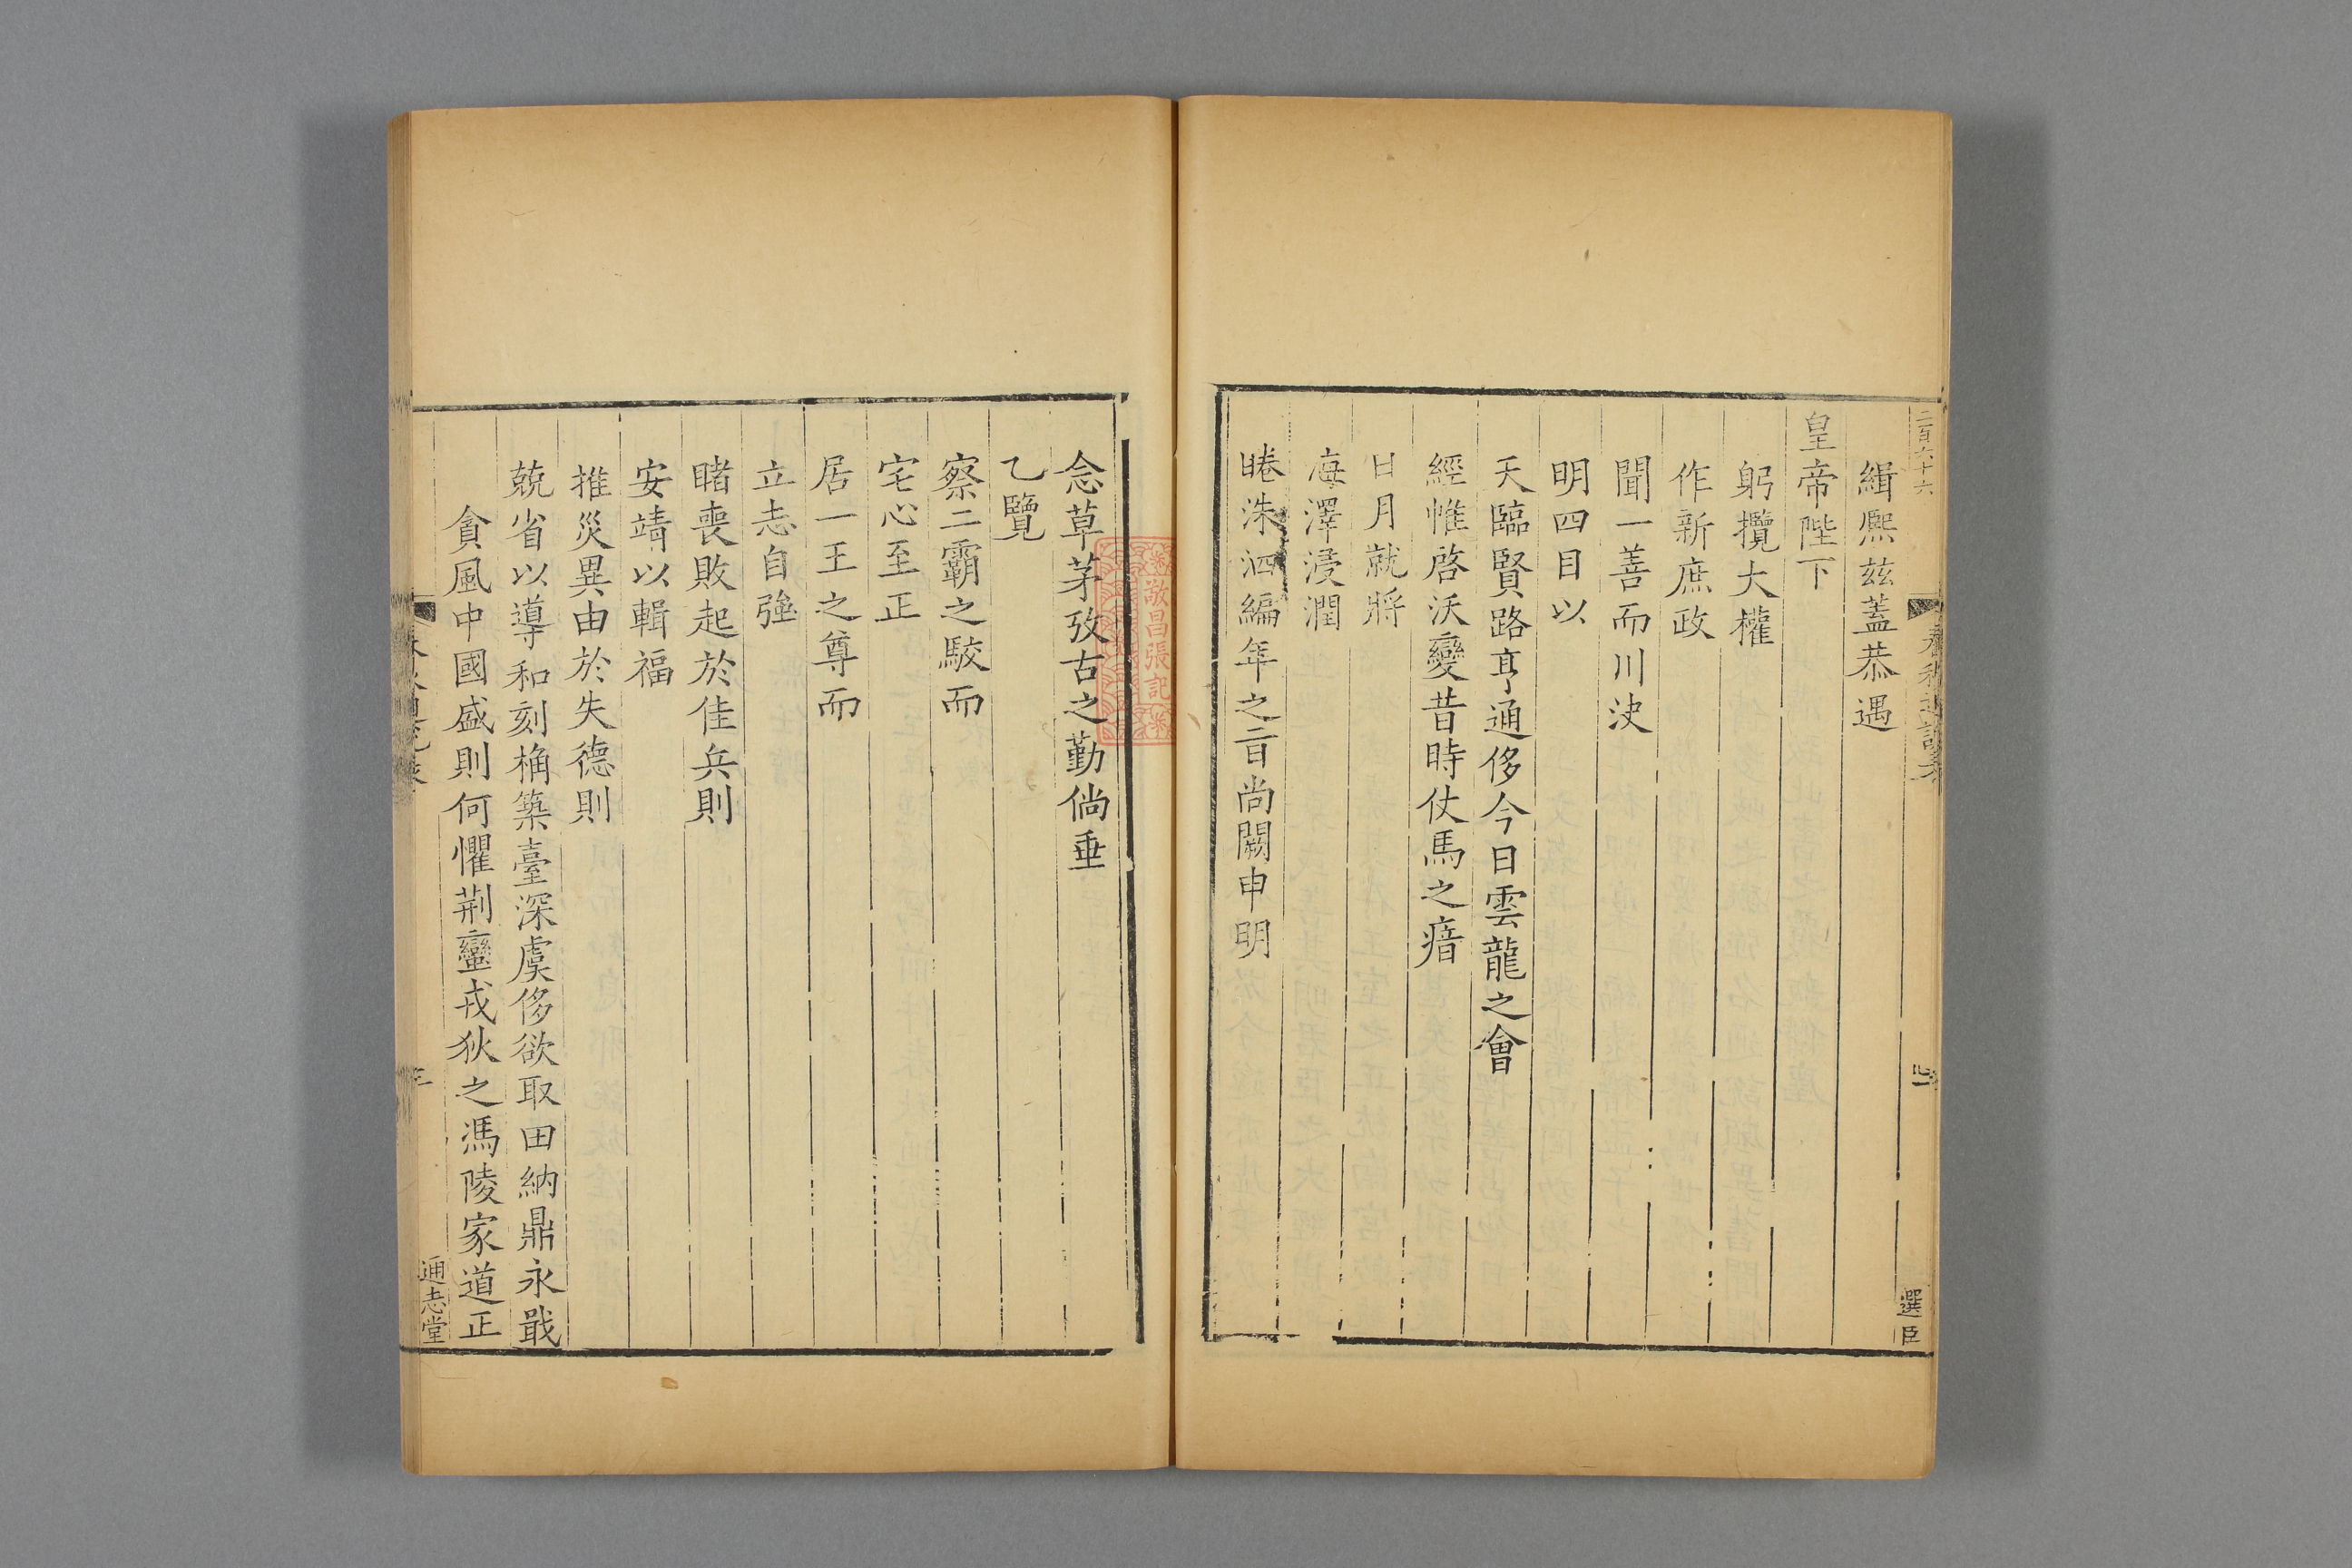 二百六十六
緝熙兹蓋恭遇
皇帝陛下
躬攬大權
作新庶政
聞一善而川決
明四目以
天臨賢路亨通侈今日雲龍之會
經帷啓沃變昔時仗馬之瘖
日月就將
海澤浸潤
睠洙泗編年之旨尚闕申明
選臣
敬昌張記
念草茅攷古之勤倘垂
乙覽
察二霸之駮而
宅心至正
居一王之尊而
立志自強
睹喪敗起於佳兵則
安靖以輯福
推災異由於失德則
兢省以導和刻桷築臺深虞侈欲取田納鼎永戢
貪風中國盛則何懼荆蠻戎狄之馮陵家道正
三
通志堂